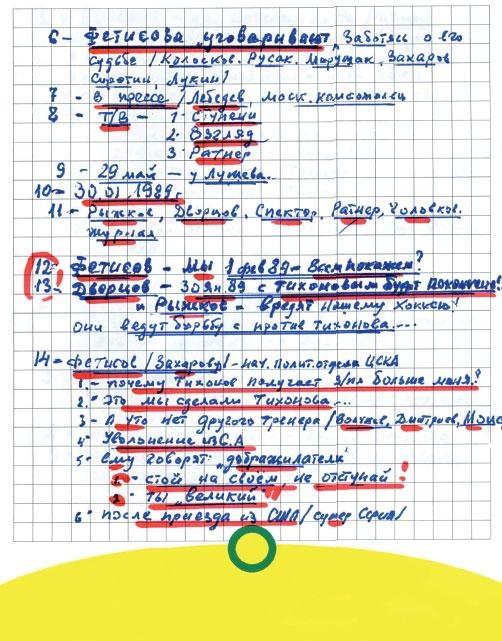 6 – Фетисова „уговаривают", заботясь о его
судьбе / Колосков. Русак. Марущак, Захаров
Сиротин, Лукин /
7 – В прессе / Лебедев, Моск. комсомолец
8 – Т/В – 1. Ступени
2. Взгляд
3. Ратнер
9 – 29 май – у Лужева..
10 – 30.01 1989 г.
11 – Рыжков, Дворцов, Спектор, Ратнер, Чоловков.
журнал
12 – Фетисов – Мы 1 фев 89 – Всем покажем?
13 – Дворцов – 30 ян. 89 с Тихоновым будет покончено!
и Рыжков – вредят нашему хоккею!
Они ведут борьбу с против Тихонова....
14 – Фетисов / Захарову / – нач. полит. отдела ЦСКА
1. – почему Тихонов получает з/пл больше меня?
2. Это мы сделали Тихонова...
3 – А что нет другого тренера /
4. Увольнение из С.А
5. ему говорят „доброжилатели"
1. стой на своём, не отступай!
2. ты „великий"
6. после приезда из США / супер серия /